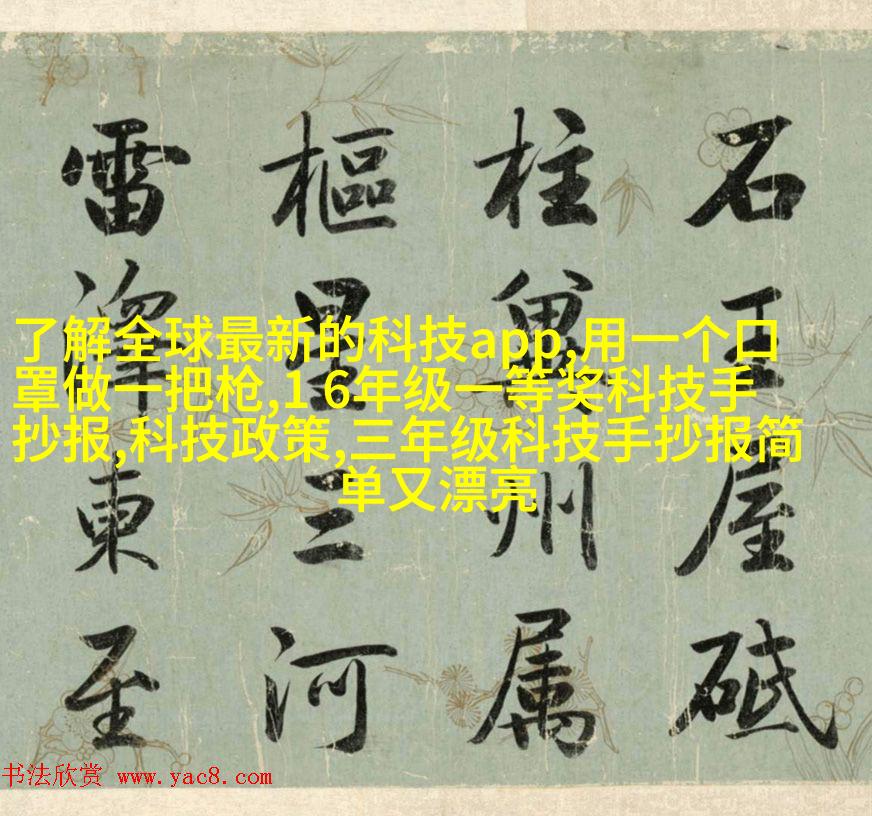 石王屋砥
柱冀州属
樞星三河
雷澤東至
了解全球最新的科技app,用一个口
罩做一把枪,1 6年级一等奖科技手
抄报,科技政策,三年级科技手抄报简
单又漂亮
书法欣赏 www.yac8.com